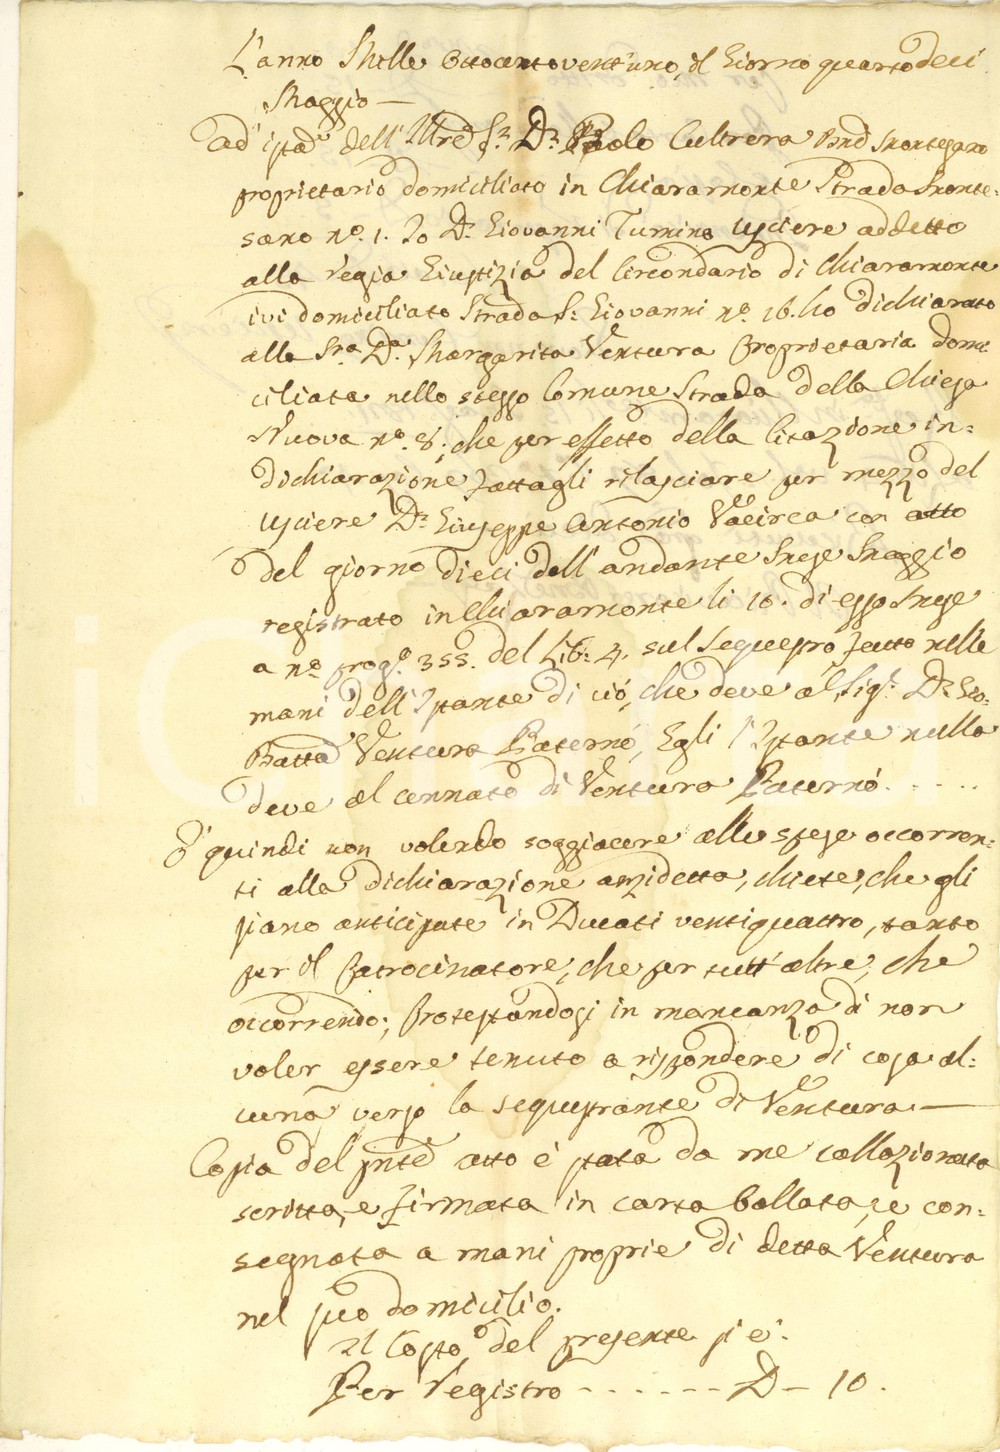 L'anno Mille Ottocentoventuno, il Giorno quartodeci
Maggio —
ad' ista dell' Illre Sr. Dn. Paolo Cultrera Bne Montesano
proprietario domiciliato in Chiaramonte Strada Monte=
sano no. 1. Io Dn. Giovanni Tumino Usciere addetto
alla regia Giustizia del Circondario di Chiaramonte
ivi domiciliato Strada S. Giovanni no. 16. ho dichiarato
alla Sra. Da. Margarita Ventura proprietaria domi
ciliata nello stesso Comune Strada della Chiesa
Nuova no. 8; che per effetto della Citazione in=
dichiarazione fattagli rilasciare per mezzo del
Usciere Dn. Giuseppe Antonio Vacirca con atto
del giorno dieci dell' andante Mese Maggio
registrato in Chiaramonte li 10. di esso Mese
a no. progo. 355. del Lib. 4. sul Sequestro fatto nelle
mani dell' Istante di ciò, che deve al Sigr. Dn. Gio:
Batta Ventura Paternò, Egli l'Istante nulla
deve al cennato di Ventura Paternò. . . . .
E' quindi non volendo soggiacere alle spese occorren=
ti alla dichiarazione anzidetta, chiete, che gli
siano anticipate in Ducati ventiquattro, tanto
per il Patrocinatore, che per tutt' altre, che
occorrendo; protestandosi in mancanza di non
voler essere tenuto a rispondere di cosa al=
cuna verso la sequestrante di Ventura. —
Copia del pnte atto è stata da me collazionata
scritta, e firmata in carta bollata, e con=
segnata a mani proprie di detta Ventura
nel suo domicilio.
Il Costo del presente si è.
Per Registro - - - - - - D — 10.